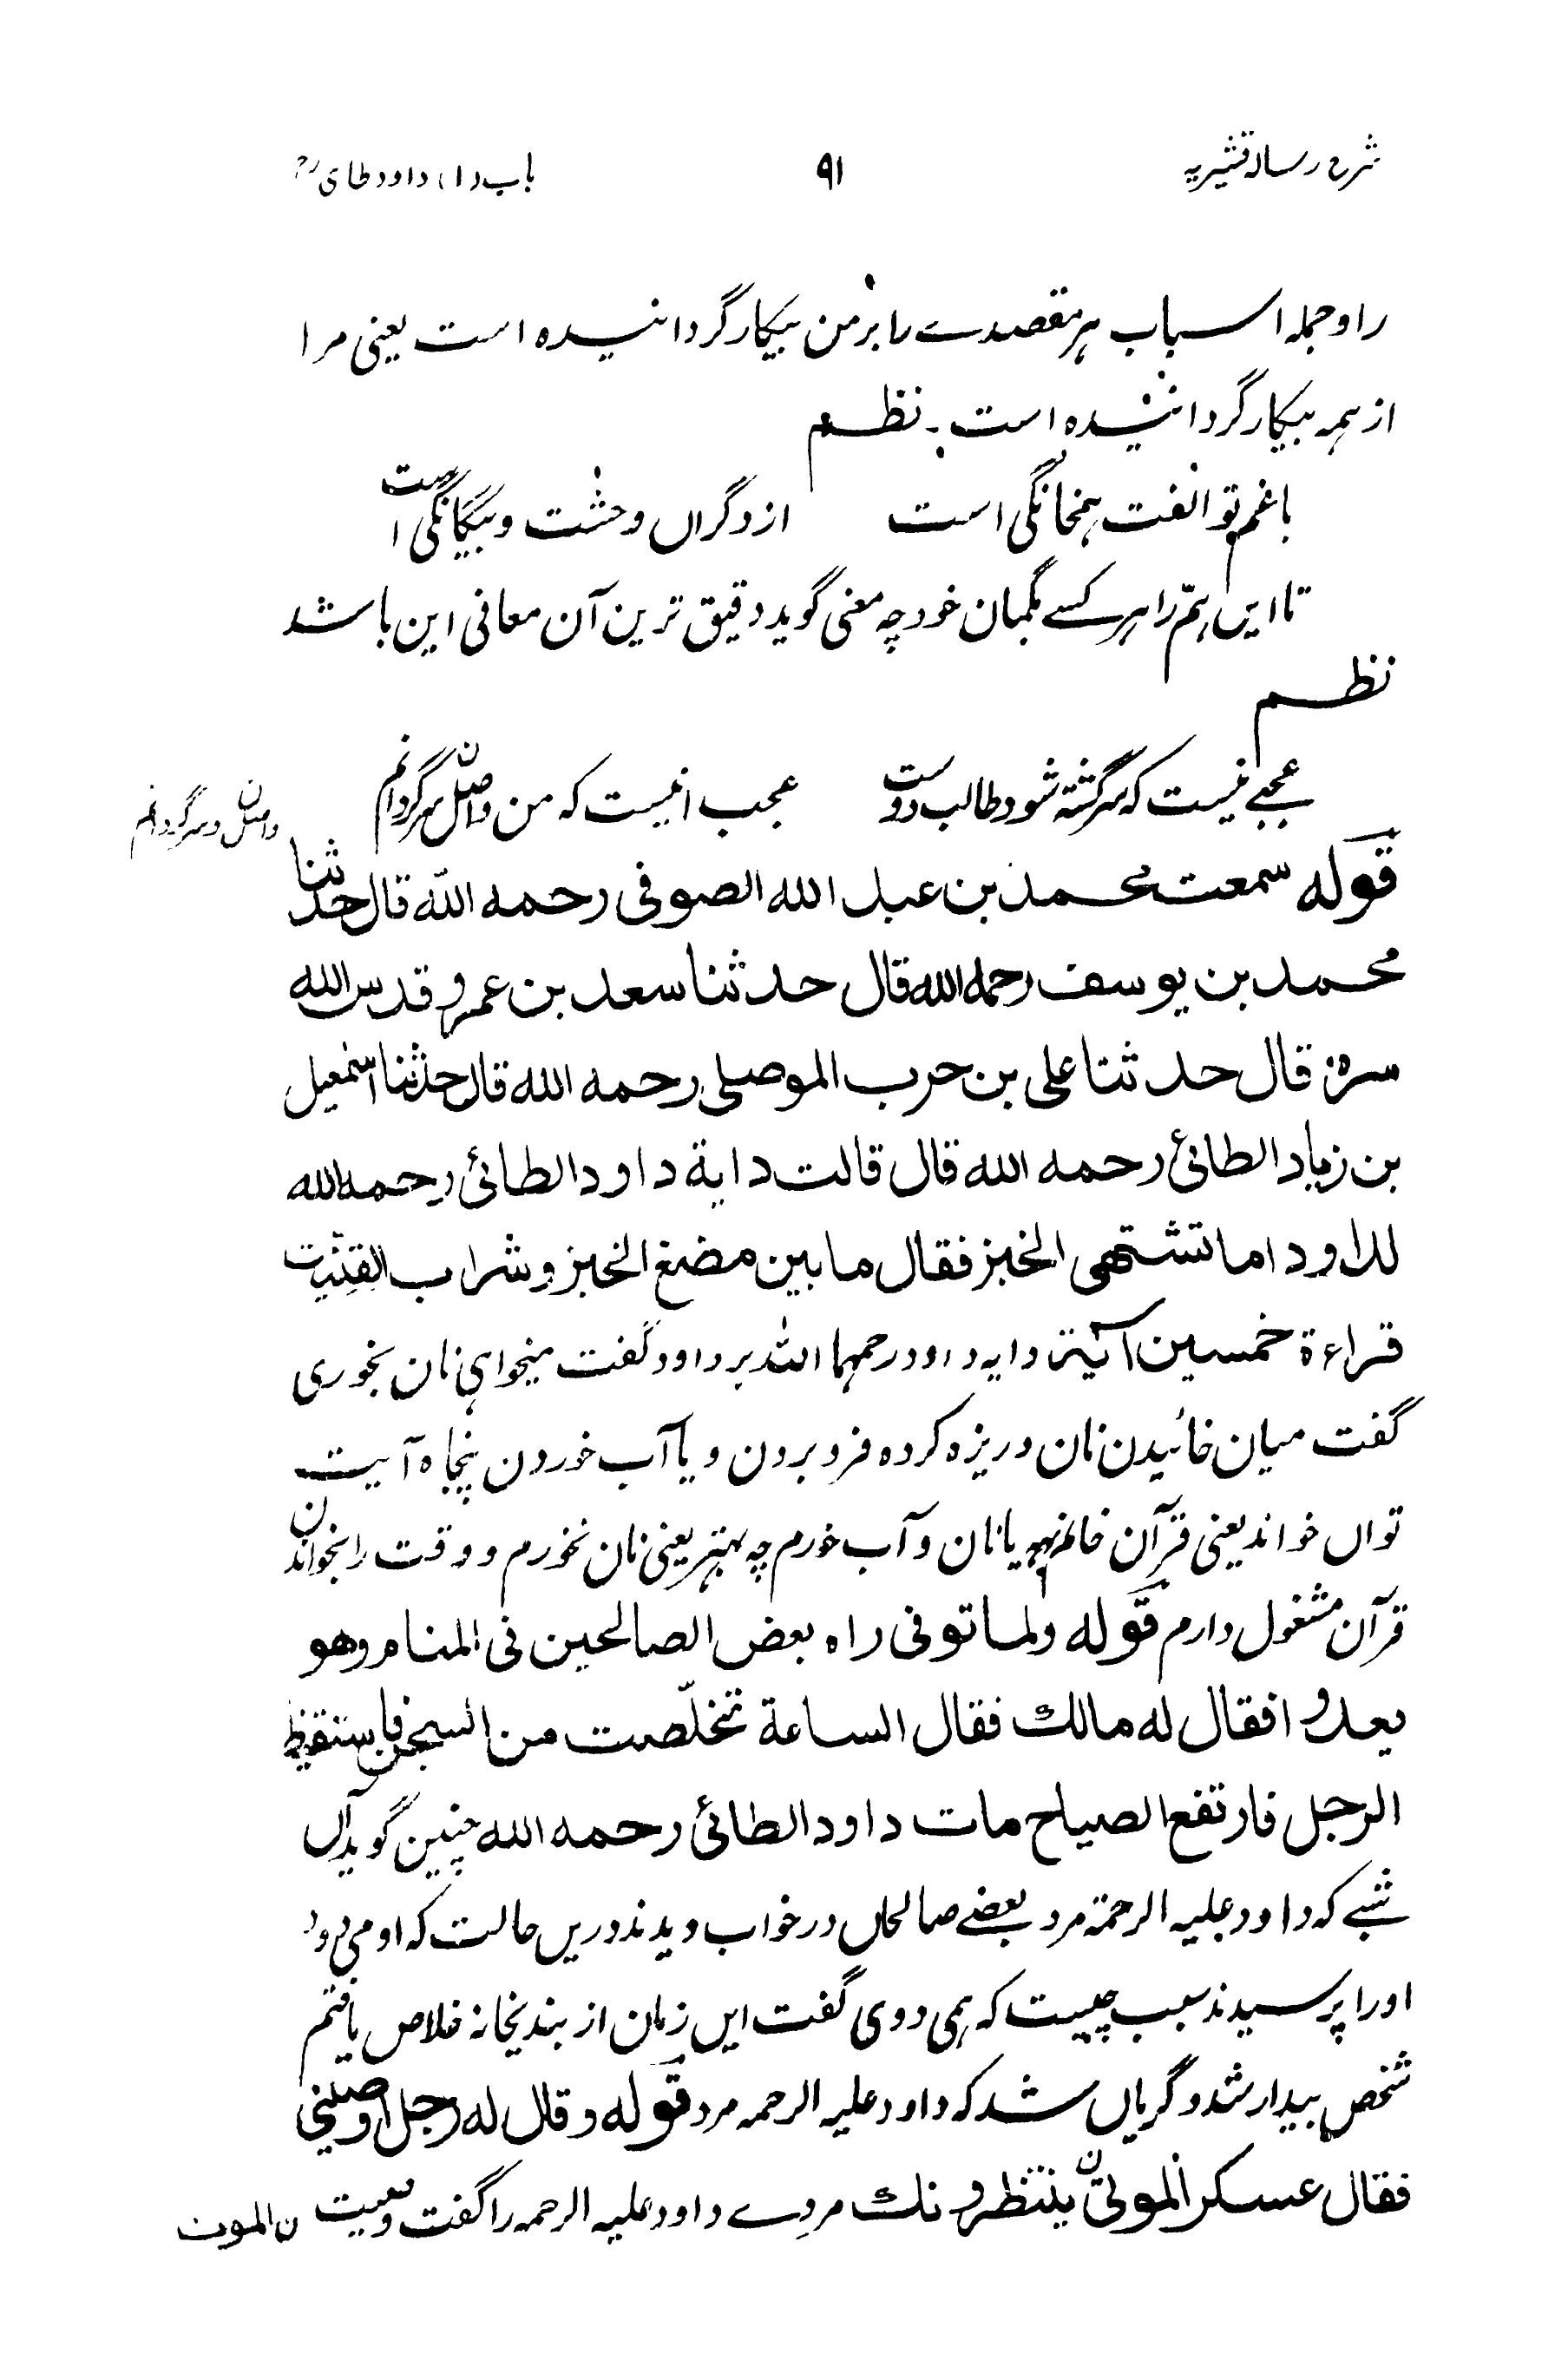 شرح رسالہ قشیریہ ۹۱ باب (۱) داود طای رح
را و جملہ اسباب ہر مقصدے را بر من بیکار گردانیدہ است یعنی مرا
از ہمہ بیکار گردانیدہ است۔ نظم
با غم تو الفت ہمخانگی است از دگراں وحشت و بیگانگی است
تا ایں ہمّ را ہر کسے بگمان خود چہ معنی گوید دقیق ترین آن معانی این باشد
نظم
عجبے نیست کہ سرگشتہ شود طالب دوست عجب اینست کہ من واصل سرگردانم
واصل و سرگردانم
قوله سمعت محمد بن عبد الله الصوفی رحمه الله قال حدثنا
محمد بن یوسف رحمه الله قال حدثنا سعد بن عمرو قدس الله
سره قال حدثنا علی بن حرب الموصلی رحمه الله قال حدثنا اسمٰعیل
بن زیاد الطائی رحمه الله قال قالت دایة داود الطائی رحمه الله
لداود اما تشتهی الخبز فقال ما بین مضغ الخبز و شراب الفتیت
قراءة خمسین آیة دایہ داود رحمہما اللہ بر داود گفت میخواہی نان بخوری
گفت میان خائیدن نان و ریزہ کردہ فرو بردن و یا آب خوردن پنجاہ آیت
تواں خواند یعنی قرآن خوانم یا نان و آب خورم چہ بہتر یعنی نان نخورم و وقت را بخواندن
قرآن مشغول دارم قوله ولما توفی راه بعض الصالحین فی المنام وهو
یعدو افقال له مالك فقال الساعة تخلّصت من السجن فاستیقظ
الرجل فارتفع الصیاح مات داود الطائی رحمه الله چنین گوید آں
شبے کہ داود علیہ الرحمۃ مرد بعضے صالحاں در خواب دیدند دریں حالت کہ او می دود
او را پرسیدند سبب چیست کہ ہمی دوی گفت ایں زمان از بندیخانہ خلاص یافتم
شخص بیدار شد و گریاں شد کہ داود علیہ الرحمہ مرد قوله و قال له رجل اوصنی
فقال عسکر الموتیٰ ینتظرونك مردے داود علیہ الرحمہ را گفت وصیت
ن الموت